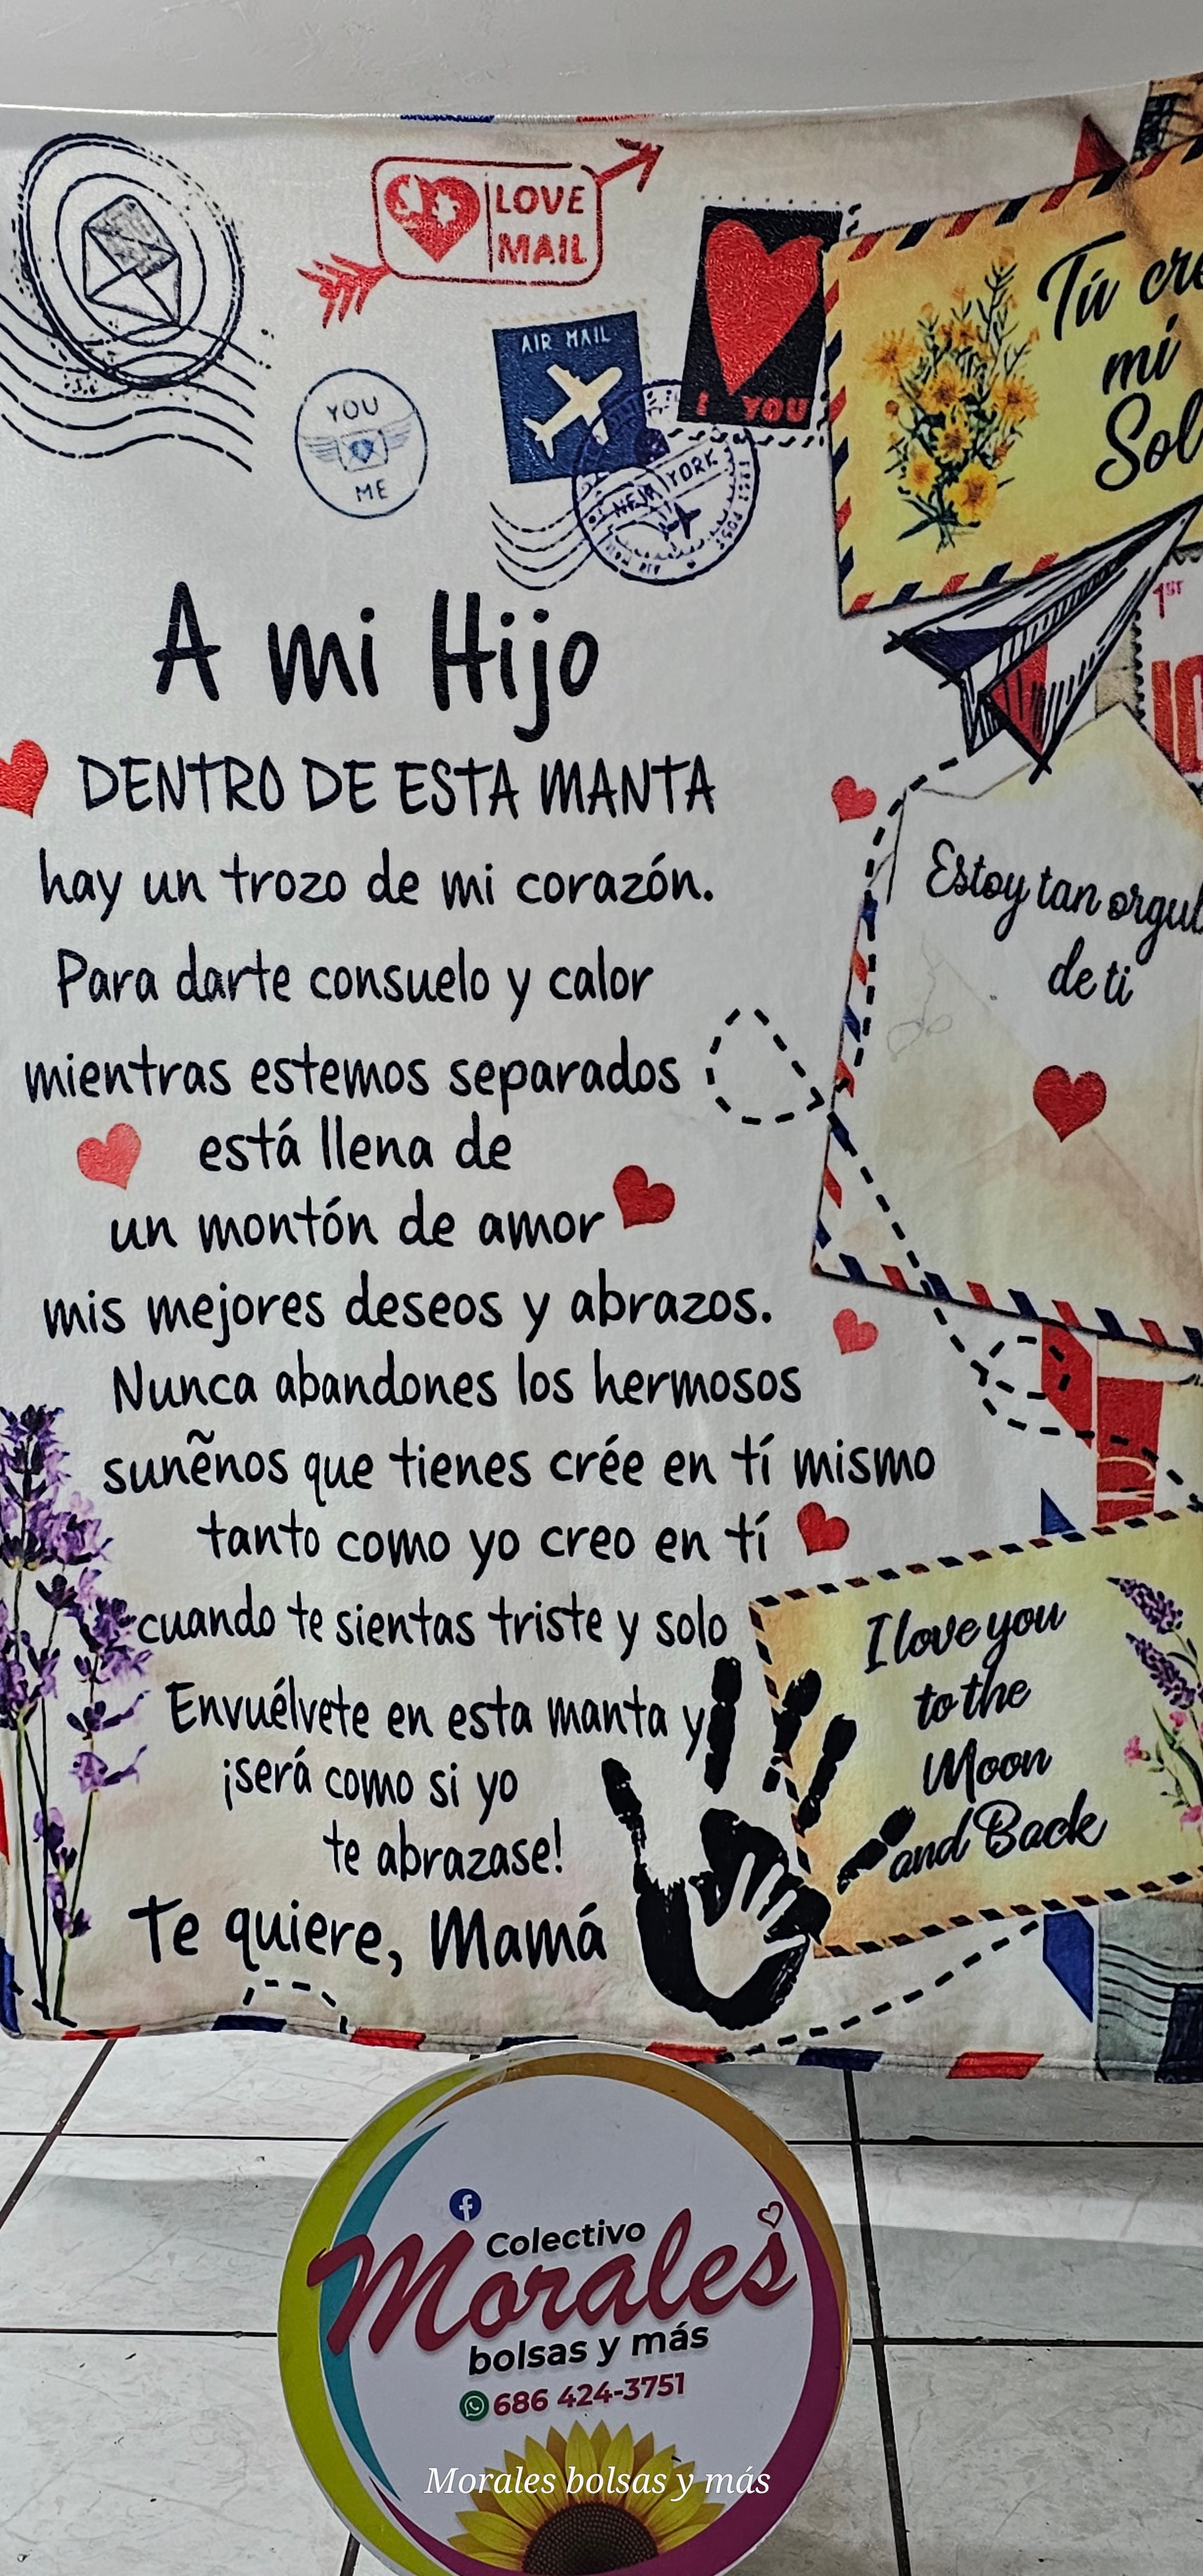 LOVE
MAIL
AIR MAIL
YOU
ME
I YOU
NEW YORK
Tú
mi
Sol
1ST
A mi Hijo
DENTRO DE ESTA MANTA
hay un trozo de mi corazón.
Para darte consuelo y calor
mientras estemos separados
está llena de
un montón de amor
mis mejores deseos y abrazos.
Nunca abandones los hermosos
sunẽnos que tienes crée en tí mismo
tanto como yo creo en tí
cuando te sientas triste y solo
Envuélvete en esta manta y
¡será como si yo
te abrazase!
Te quiere, Mamá
Estoy tan orgul
de ti
I love you
to the
Moon
and Back
Colectivo
Morales
bolsas y más
686 424-3751
Morales bolsas y más